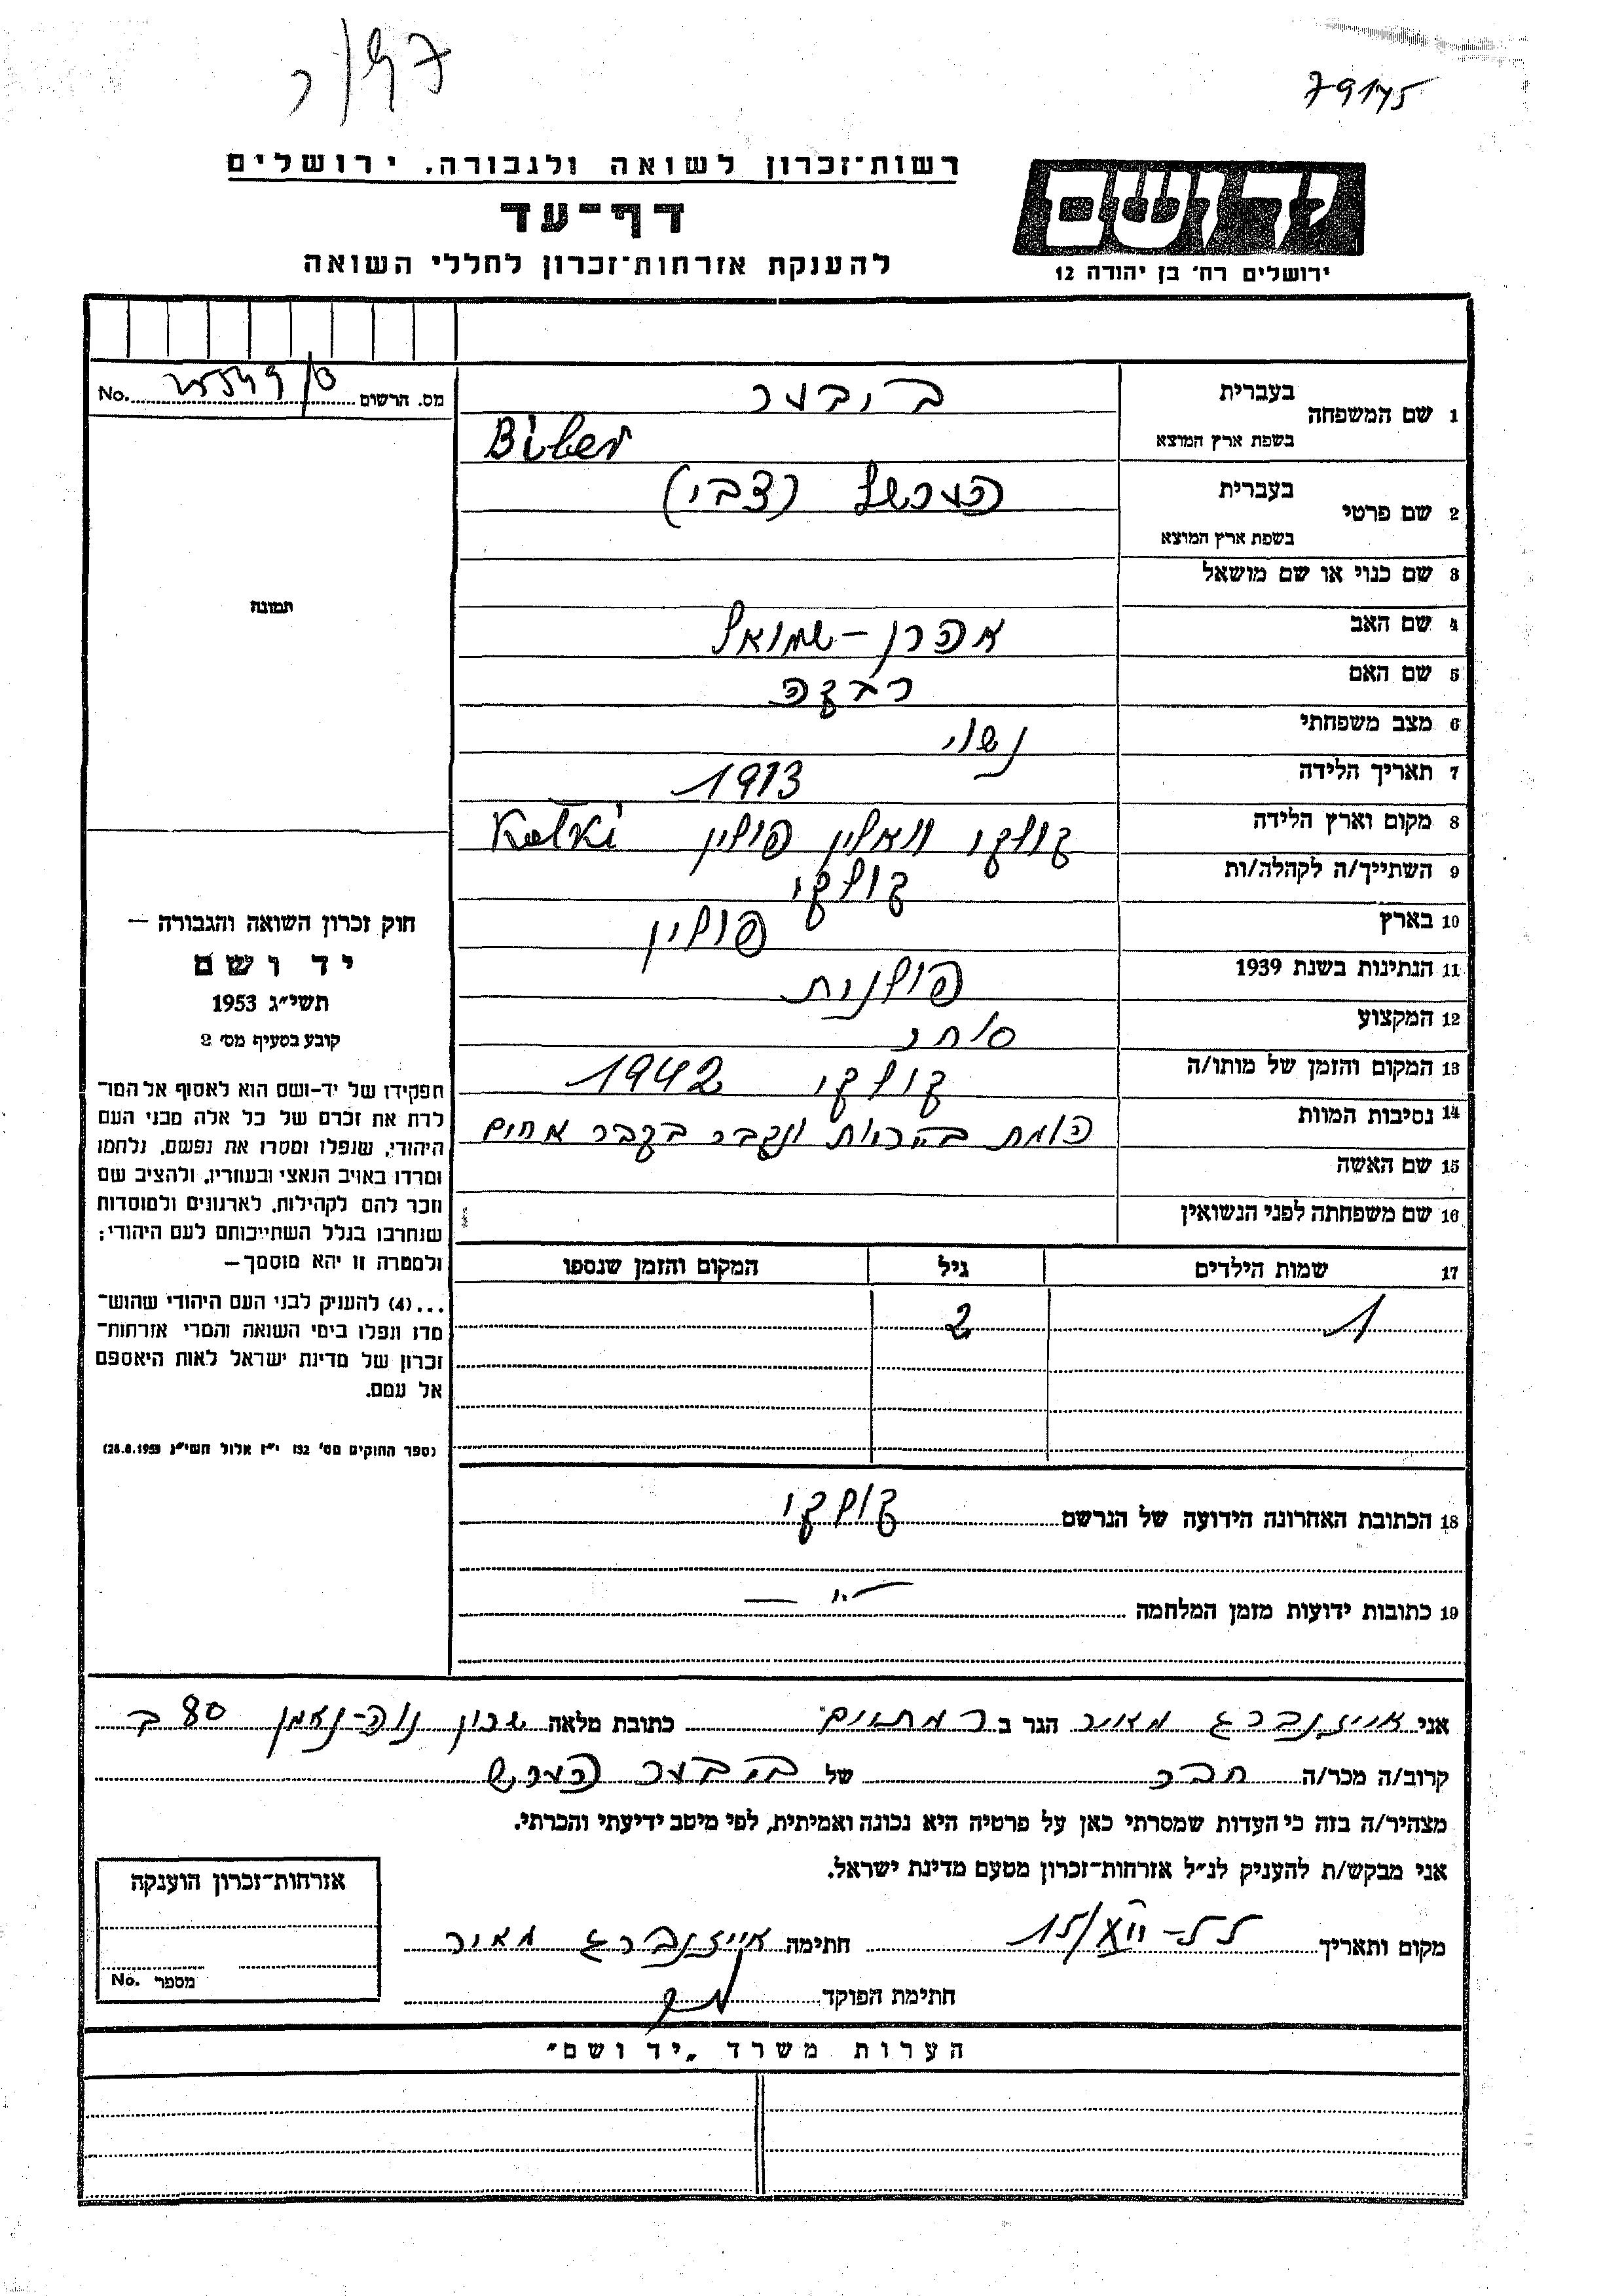 79175
רשות־זכרון לשואה ולגבורה, ירושלים
דף־עד
להענקת אזרחות־זכרון לחללי השואה
יד ושם
ירושלים רח' בן יהודה 12
מס. הרשום No.
1 שם המשפחה בעברית ביבער
בשפת ארץ המוצא Biber
2 שם פרטי בעברית הערשל (צבי)
בשפת ארץ המוצא
3 שם כנוי או שם מושאל
4 שם האב אהרן-שמואל
5 שם האם רבקה
6 מצב משפחתי נשוי
7 תאריך הלידה 1913
8 מקום וארץ הלידה קולקי וואלין פולין Kolki
9 השתייך/ה לקהלה/ות קולקי
10 בארץ פולין
11 הנתינות בשנת 1939 פולנית
12 המקצוע סוחר
13 המקום והזמן של מותו/ה קולקי 1942
14 נסיבות המוות הומת ביריות ונקבר בקבר אחים
15 שם האשה
16 שם משפחתה לפני הנשואין
17 שמות הילדים גיל המקום והזמן שנספו
1 2
18 הכתובת האחרונה הידועה של הנרשם קולקי
19 כתובות ידועות מזמן המלחמה
תמונה
חוק זכרון השואה והגבורה —
יד ושם
תשי״ג 1953
קובע בסעיף מס' 2
תפקידו של יד-ושם הוא לאסוף אל המו־
לדת את זכרם של כל אלה מבני העם
היהודי, שנפלו ומסרו את נפשם, נלחמו
ומרדו באויב הנאצי ובעוזריו, ולהציב שם
וזכר להם לקהילות, לארגונים ולמוסדות
שנחרבו בגלל השתייכותם לעם היהודי;
ולמטרה זו יהא מוסמך —
...(4) להעניק לבני העם היהודי שהוש־
מדו ונפלו בימי השואה והמרי אזרחות־
זכרון של מדינת ישראל לאות היאספם
אל עמם.
(ספר החוקים מס' 132 י״ז אלול תשי״ג 28.8.1953)
אני אייזנברג מאיר הגר ב רמתיים כתובת מלאה שכון נוה-נאמן 80 ב
קרוב/ה מכר/ה חבר של ביבער הערש
מצהיר/ה בזה כי העדות שמסרתי כאן על פרטיה היא נכונה ואמיתית, לפי מיטב ידיעתי והכרתי.
אני מבקש/ת להעניק לנ״ל אזרחות-זכרון מטעם מדינת ישראל.
מקום ותאריך חתימה אייזנברג מאיר
חתימת הפוקד
אזרחות־זכרון הוענקה
מספר No.
הערות משרד „יד ושם״